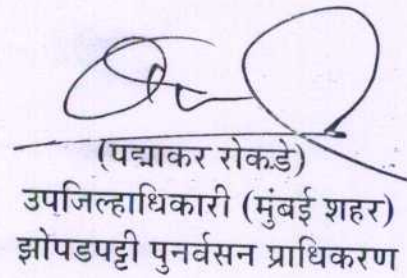 (पद्माकर रोकडे)
उपजिल्हाधिकारी (मुंबई शहर)
झोपडपट्टी पुनर्वसन प्राधिकरण